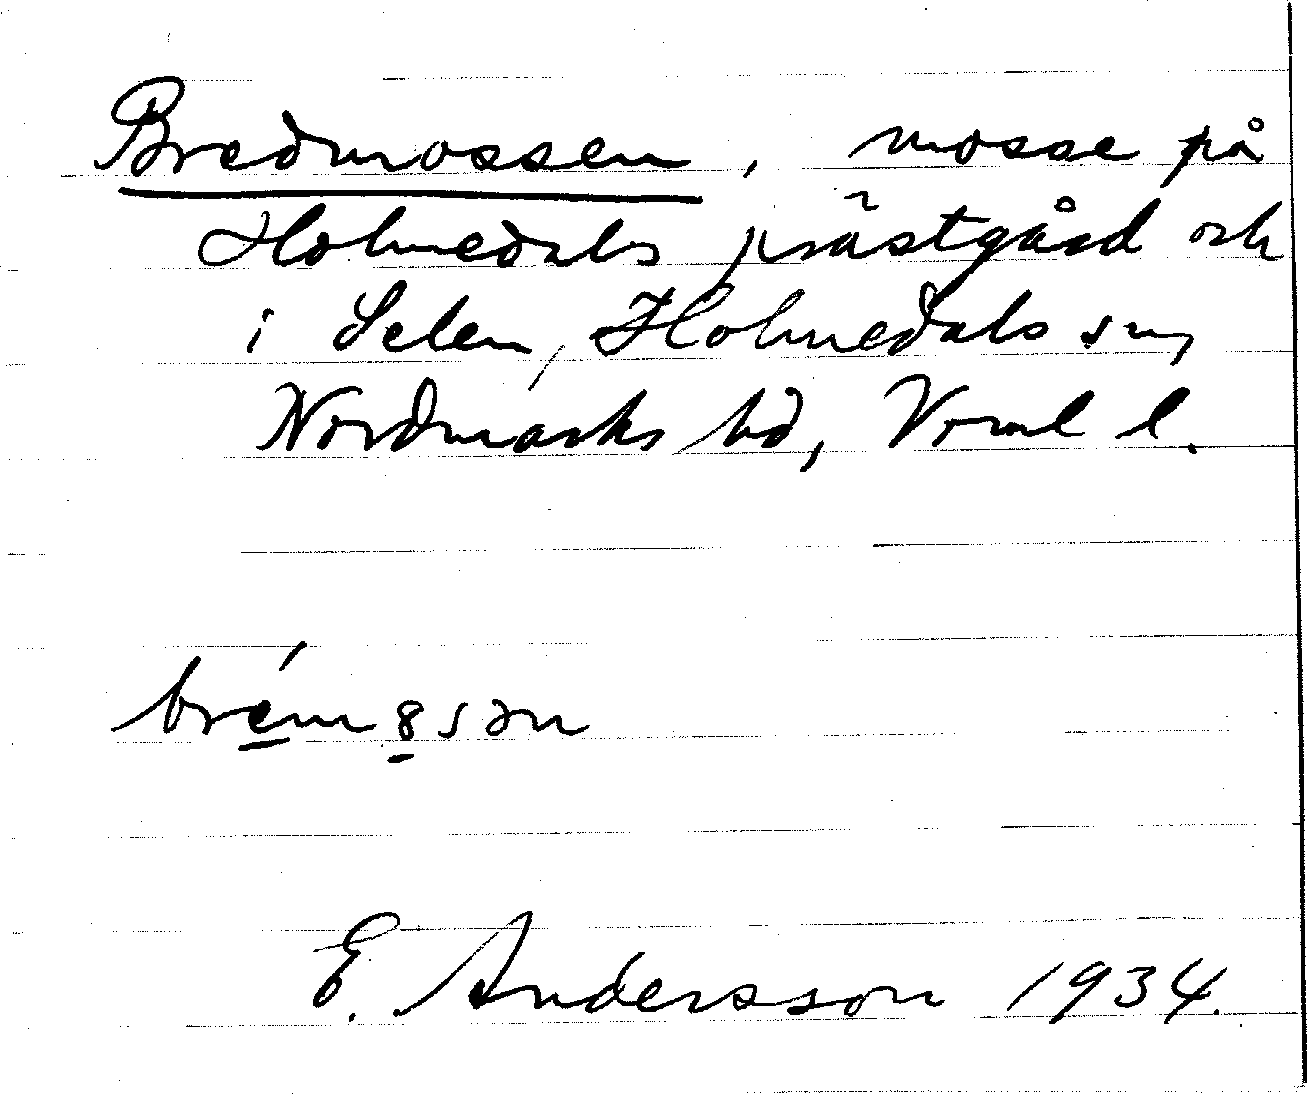 Bredmossen, mosse på
Holmedals prästgård och
i Selen, Holmedals sn,
Nordmarks hd, Vrml l.
E. Andersson 1934.